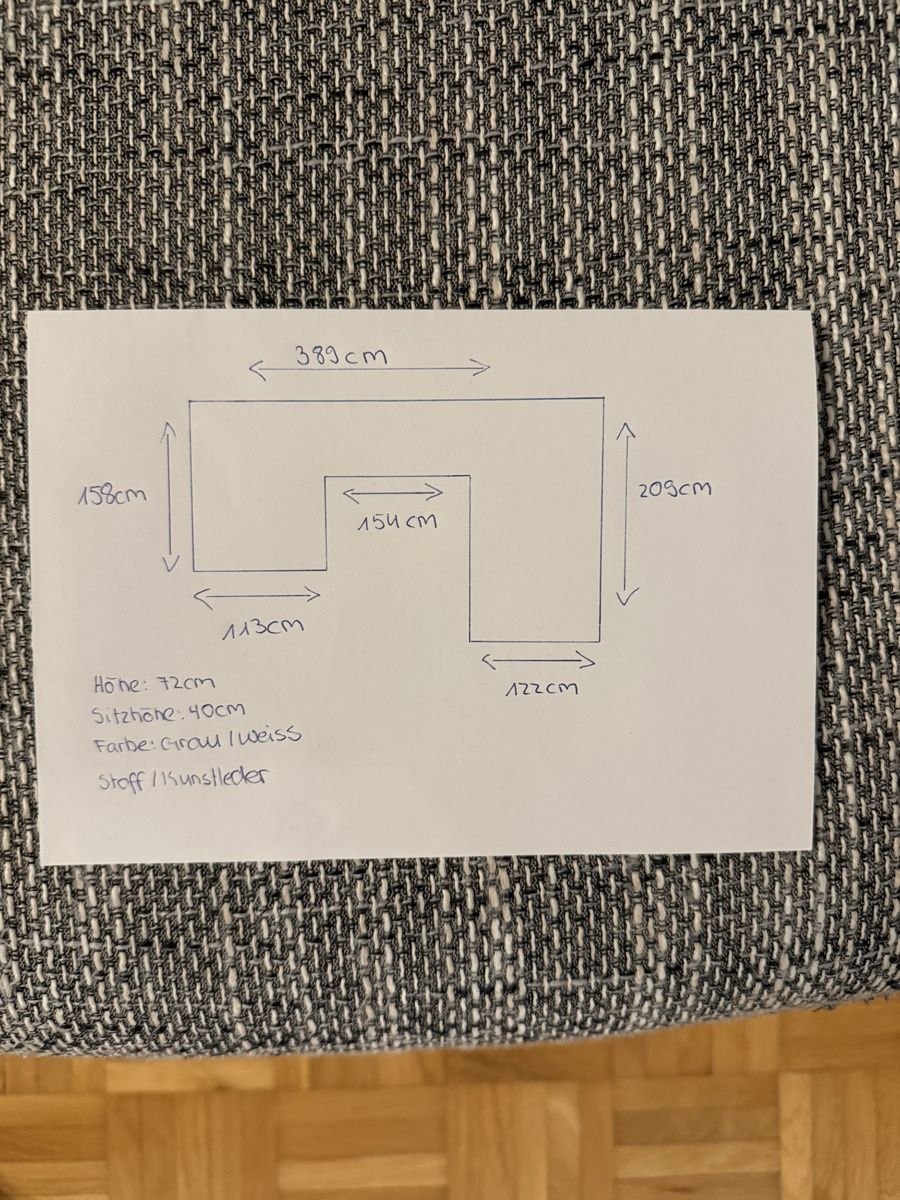 389cm
158cm
209cm
154cm
113cm
122cm
Höhe: 72cm
Sitzhöhe: 40cm
Farbe: Grau/Weiss
Stoff/Kunstleder